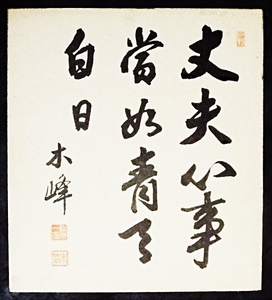 丈夫心事
當如青天
白日
木峰